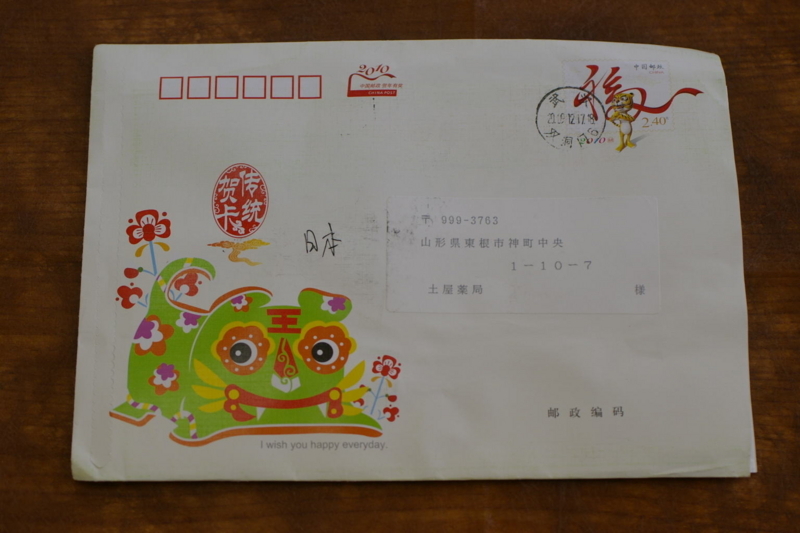 2010
CHINA POST
中国邮政
福
2.40
2010
传统
贺卡
日本
〒 999-3763
山形県東根市神町中央
1－10－7
土屋薬局 様
王
邮政编码
I wish you happy everyday.